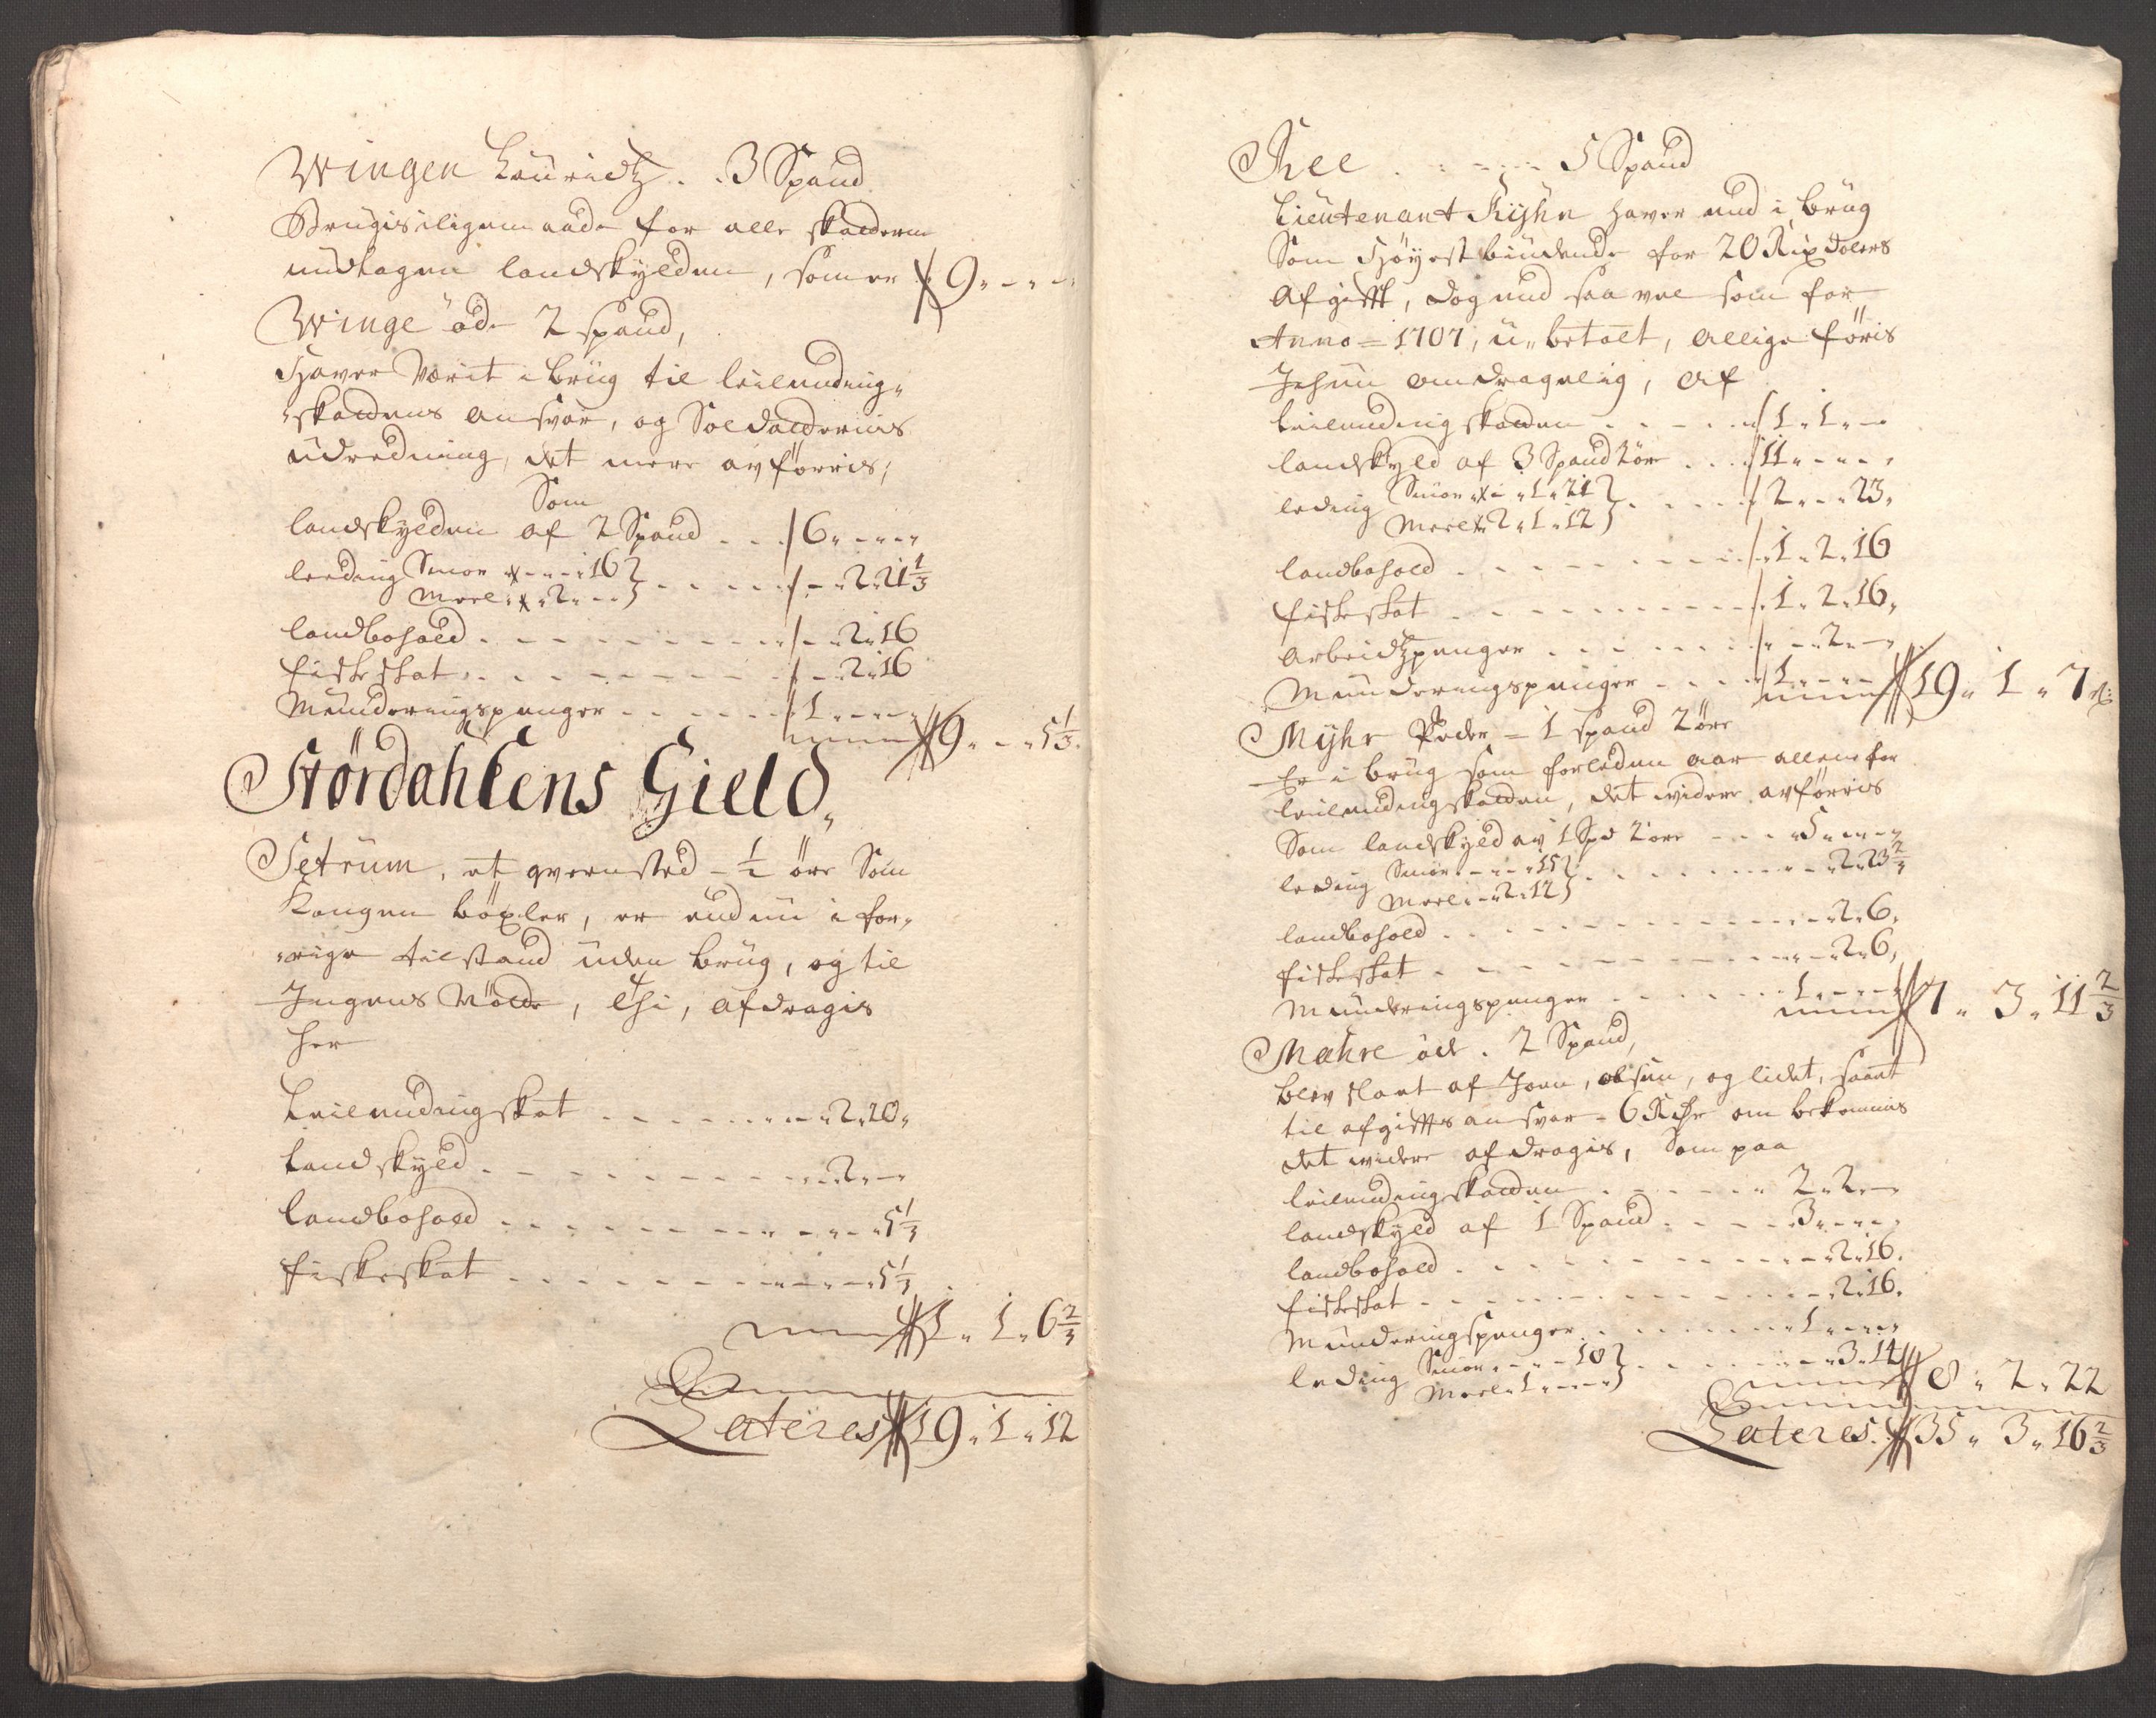 Wingen Lauridtz. . 3 Spand
Brugis iligemaade for alle skatterne
undtagen landskylden, som er 9 „ - „ -
Winge öde 2 spand,
Hafver Wærit i brug til leilending„
„skattens ansvar, og Soldatternis
udredning, det mere afförris,
Som
landskylden af 2 Spand . . . 6 „ - „ -
leeding Smör - „ - „ 16
Meel „ 2 „ - . . . - „ 2 „ 21 1/3
landbohold . . . . - „ 2 „ 16
fiskeskat . . . . - „ 2 „ 16
Munderingspenger . . . . 1 „ - „ -
9 „ - „ 5 1/3
Stördahlens Gield„
Setrum, et qvernsted - 1/2 öre Som
Kongen böxler, er endnu i for„
„rige tilstand uden brug, og til
Ingens Nötte, thi, afdragis
her
Leilendingskat . . . . - „ 2 „ 20„
Landskyld . . . . - „ 2 „ -
landbohold . . . . - „ - „ 5 1/3
fiskeskat . . . . - „ - „ 5 1/3
1 „ 1 „ 6 2/3
Lateres 19 „ 1 „ 12
Ree . . . . 5 Spand
Lieutenant Kyhn haver end i brug
Som Höyestbiudende for 20 Rixdalers
Afgifft, dog end saa vel som for
Anno = 1707, u„betalt, allige föris
Jehnn omdragelig, af
leilendingskatten . . . . 1 „ 1 „ -
landskyld af 3 Spand 2 öre . . . 11 „ - „ -
leding Smör „ 1 „ 21
Meel „ 2 „ 1 „ 12 . . . 2 „ - „ 23„
landbohold . . . . 1 „ 2 „ 16
fiskeskat . . . . 1 „ 2 „ 16„
Arbeidtzpenger . . . . - „ 2 „ -
Munderingspenger . . . . 1 „ - „ -
19 „ 1 „ 7
Myhr Peder = 1 spand 2 öre
Er i brug som forleden aar allene for
leilendingskatten, det widere afförris
Som landskyld av 1 Spd 2 öre - - - 5 „ - „ -
leding Smör . - „ - „ 15
Meel . - „ 2 „ 12 . . . - „ 2 „ 23 2/3
landbohold . . . . - „ 2 „ 6„
fiskeskat . . . . - „ 2 „ 6„
Munderingspenger . . . . 1 „ - „ -
7 „ 3 „ 11 2/3
Mæhre öde . 2 Spand,
blev slaat af Joen, olsen, og lidet, saaet
til afgiffts ansvar = 6 Rdr om bekommis
det widere afdragis, Som paa
leilendingskatten . . . . 2 „ 2 „ -
landskyld af 1 Spand . . . . 3 „ - „ -
landbohold . . . . - „ 2 „ 16.
fiskeskat . . . . - „ 2 „ 16.
Munderingspenger . . . . 1 „ - „ -
leding Smör . - „ - „ 18
Meel „ 1 „ - „ - . . . - „ 3 „ 14
8 „ 2 „ 22
Lateres. 35 „ 3 „ 16 2/3